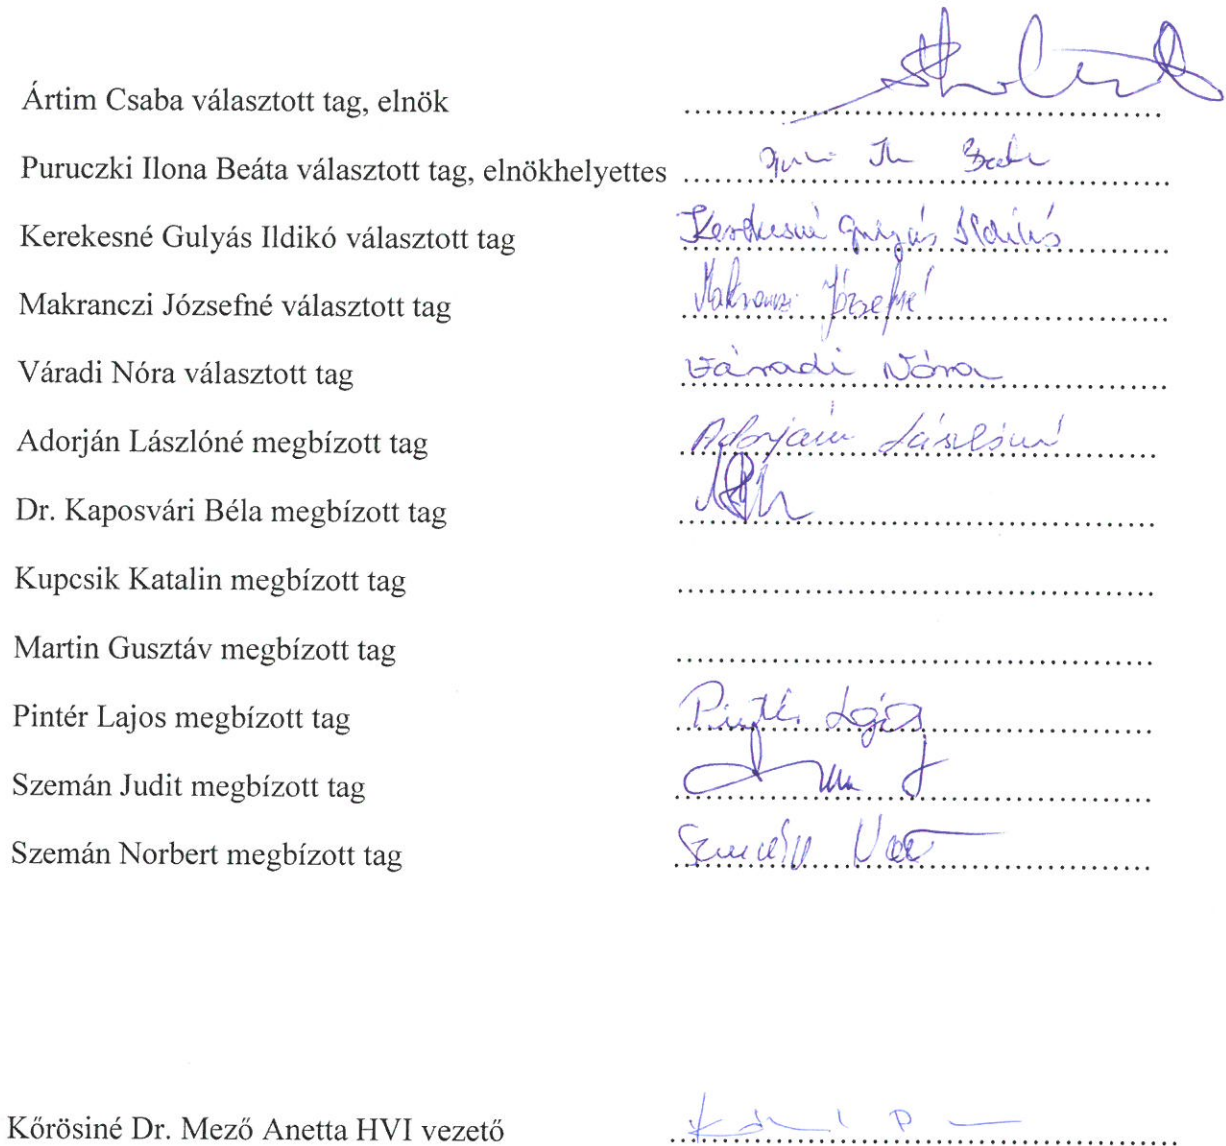 Ártim Csaba választott tag, elnök ........................................
Puruczki Ilona Beáta választott tag, elnökhelyettes ........................................
Kerekesné Gulyás Ildikó választott tag Kerekesné Gulyás Ildikó
Makranczi Józsefné választott tag Makranczi Józsefné
Váradi Nóra választott tag Váradi Nóra
Adorján Lászlóné megbízott tag Adorján Lászlóné
Dr. Kaposvári Béla megbízott tag ........................................
Kupcsik Katalin megbízott tag ........................................
Martin Gusztáv megbízott tag ........................................
Pintér Lajos megbízott tag Pintér Lajos
Szemán Judit megbízott tag ........................................
Szemán Norbert megbízott tag ........................................
Kőrösiné Dr. Mező Anetta HVI vezető ........................................